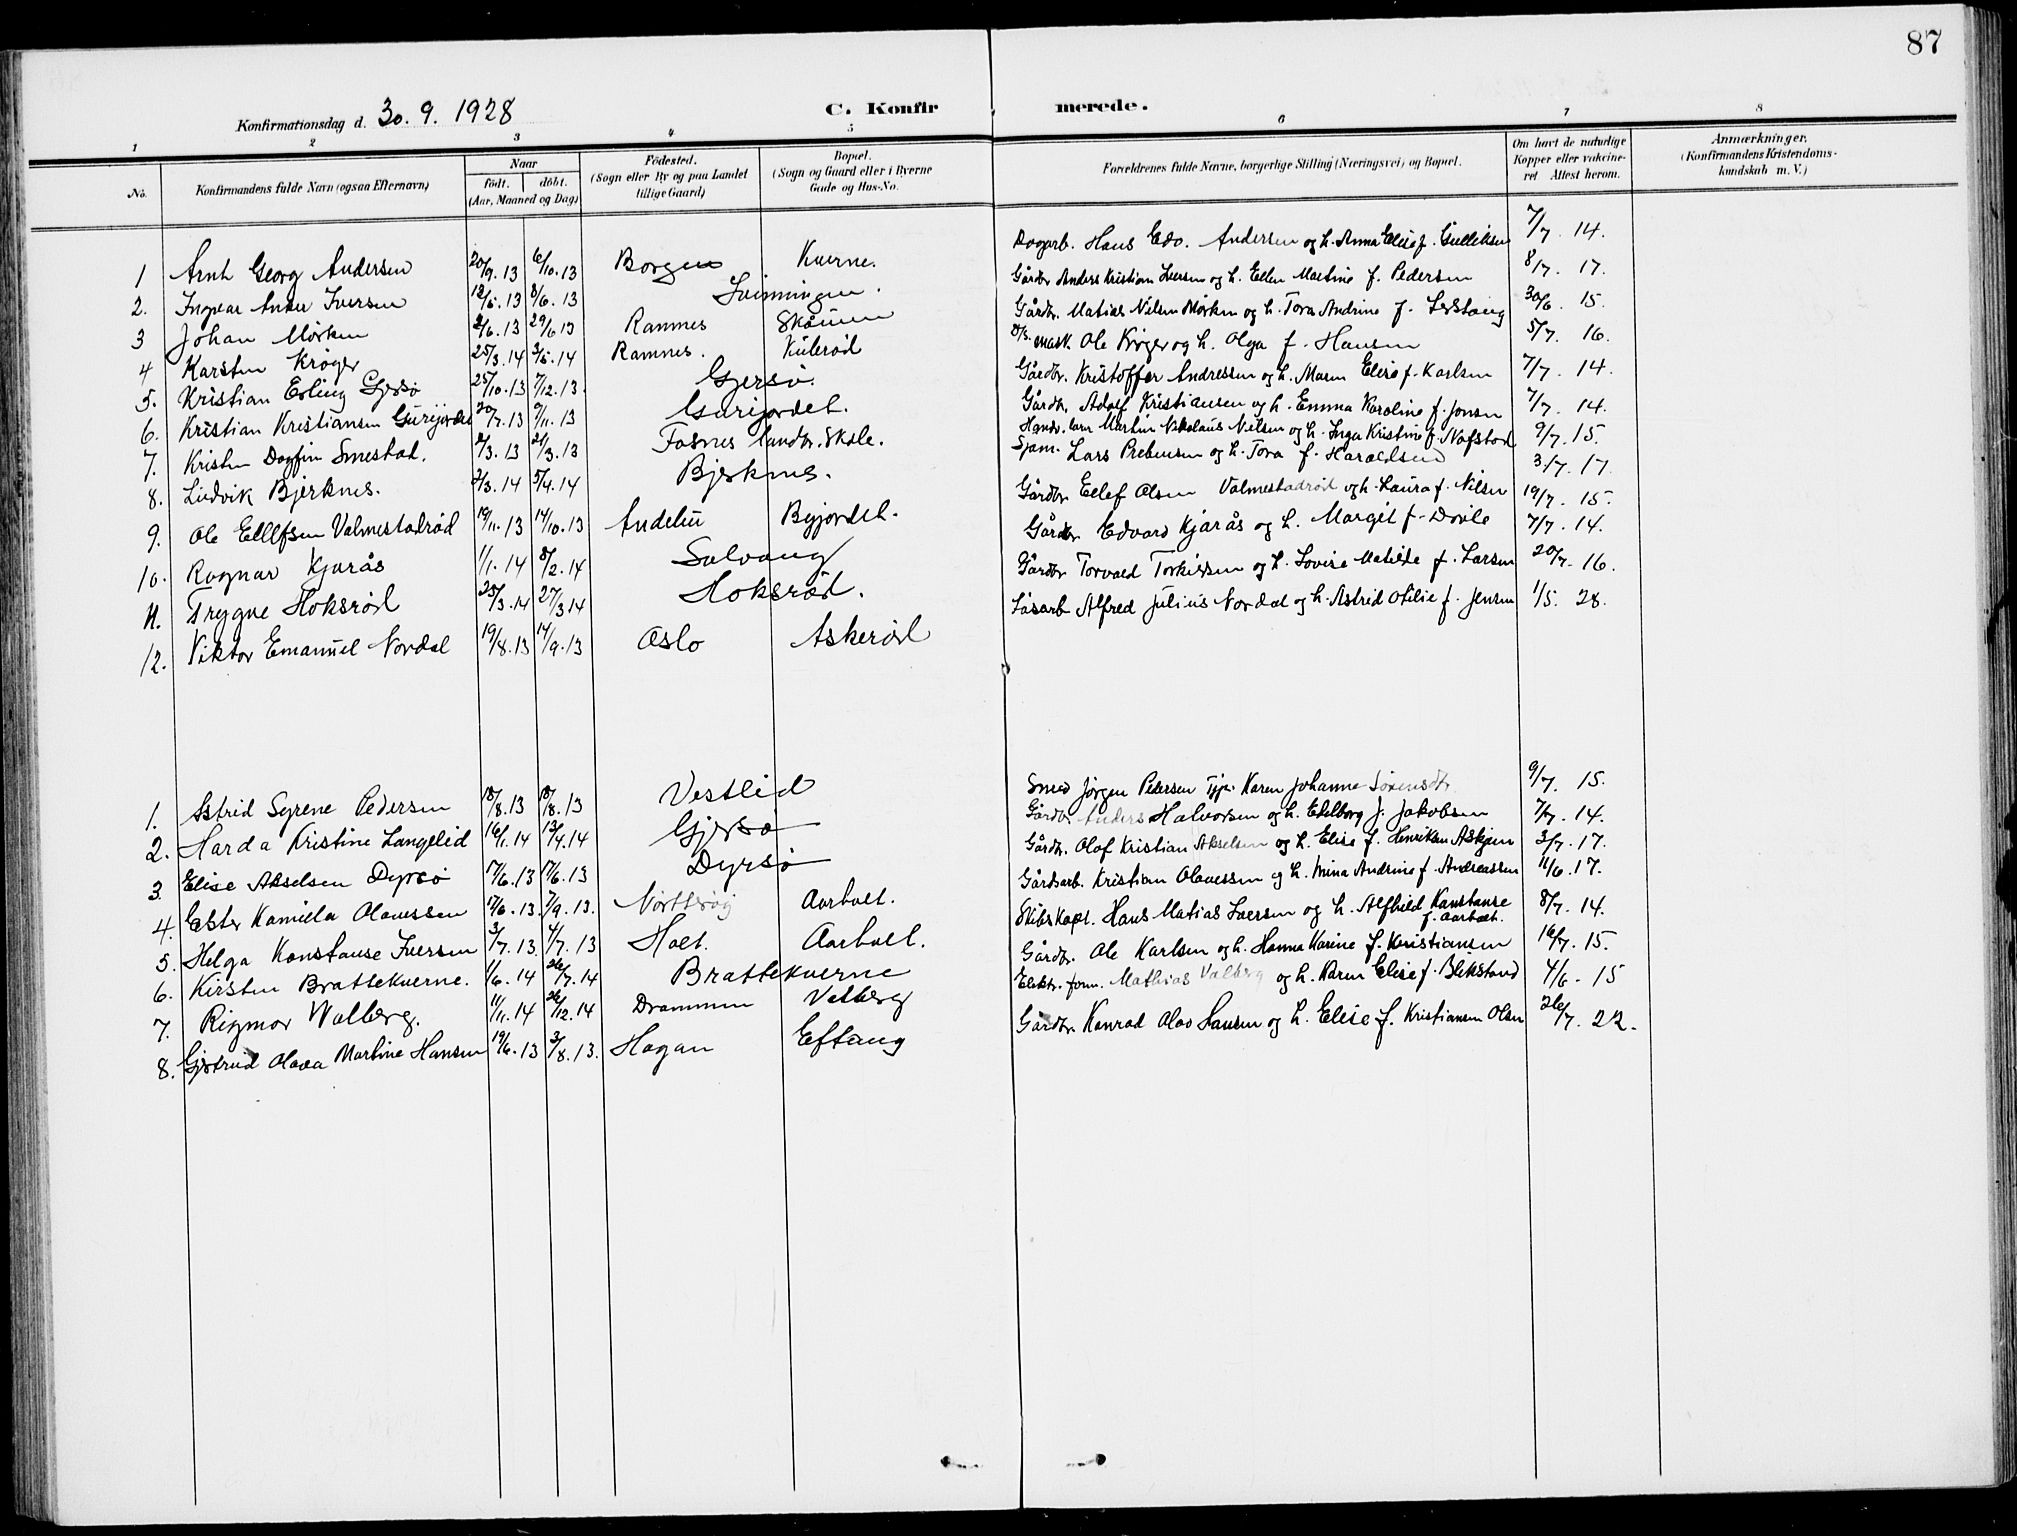 87
Konfirmationsdag d. 30. 9. 1928
C. Konfirmerede.
1 2 3 4 5 6 7 8
No.
Konfirmandens fulde Navn (ogsaa Efternavn)
Naar
födt. döbt.
(Aar, Maaned og Dag)
Födested.
(Sogn eller By og paa Landet
tillige Gaard)
Bopæl.
(Sogn og Gaard eller i Byerne
Gade og Hus-No.
Forældrenes fulde Navne, borgerlige Stilling (Næringsvei) og Bopæl.
Om havt de naturlige
Kopper eller vakcine-
ret Attest herom.
Anmærkninger.
(Konfirmandens Kristendoms-
kundskab m. V.)
1 Arnt Georg Andersen 20/9.13 6/10.13 Borgen Kverne. Dagarb. Hans Edv. Andersen og h. Anna Elise f. Gulliksen 7/7. 14.
2. Ingvar Anker Iversen 12/5.13 8/6.13 Svinningen. Gårdbr Anders Kristian Iversen og h. Ellen Martine f. Pedersen 8/7. 17.
3 Johan Mørken 2/6.13 29/6 13 Ramnes Skånum Gårdbr. Matias Nilsen Mørken og h. Tora Andrine f. 30/6. 15.
4 Karsten Krøger 25/3.14 3/5.14 Ramnes. Kulerød mask. Ole Krøger og h. Olga f. Hansen 5/7. 16.
5. Kristian Erling Gjersø 25/10.13 7/12.13. Gjersø. Gårdbr. Kristoffer Andressen og h. Maren Elise f. Karlsen 7/7. 14.
6. Kristian Kristiansen Gurijordet 20/7.13 9/11.13 Gurijordet. Gårdbr. Adolf Kristiansen og h. Emma Karoline f. Jonsen 7/7. 14.
7. Kristen Dagfin Smestad. 2/3.13 21/3.13 Fosnes landbr. Skole. Martin Nikolaus Nilsen og h. Inga Kristine f. Nafstad 9/7. 15.
8. Ludvik Bjerknes. 2/3.14 5/4.14 Bjerknes. Sjøm. Lars Prebensen og h. Tora f. Haraldsen 3/7. 17.
9. Ole Ellefsen Valmestadrød 19/11.13 14/10.13 Andebu Byjordet. Gårdbr Ellef Olsen Valmestadrød og h. Laura f. Nilsen 19/7. 15.
10. Ragnar Kjærås 1/1.14 8/2.14 Solvang Gårdbr Edvard Kjærås og h. Margit f. Døvle 7/7. 14.
11. Trygve Hoksrød 25/3.14 27/3 14 Hoksrød. Gårdbr Torvald Torkildsen og h. Lovise Matilde f. Larsen 20/7. 16.
12. Viktor Emanuel Nordal 19/8.13 14/9.13 Oslo Askerød Løsarb Alfred Julius Nordal og h. Astrid Otilie f. Jensen 1/5. 28.
1. Astrid Syrene Pedersen 18/8.13 18/8.13 Vestlid Smed Jörgen Petersen Karen Johanna Sørensdtr 9/7. 15.
2. Harda Kristine Langelid 16/1.14 13/4.14 Gjersø Gårdbr. Anders Halvorsen og h. Edelborg f. Jakobsen 7/7. 14.
3. Elise Akselsen Dyrsö 17/6.13 17/6.13 Dyrsö Gårdbr. Olaf Kristian Akselsen og h. Elise f. Henriksen Askjem 3/7. 17.
4. Ester Kamilla Olavessen 17/6.13. 7/9.13. Aarholt. Gårdsarb. Kristian Olavessen og h. Mina Andrine f. Andreassen 11/6.17.
5. Helga Konstanse Iversen 3/7.13. 4/7.13 Holt. Aarholt. Skibskapt. Hans Matias Iversen og h. Alfhild Konstanse
f. Aarholt. 8/7. 14.
6. Kirsten Brattekverne. 1/6.14 26/7.14 Brattekverne Gårdbr. Ole Karlsen og h. Hanna Karine f. Kristiansen 16/7. 15.
7. Rigmor Valberg. 11/11.14 26/12.14 Drammen Valberg Elektr. form. Mathias Valberg og h. Karen Elise f. Blikstad 4/6. 15
8. Gjertrud Olava Martine Hansen 19/6.13 3/8.13. Hogan Eftang Gårdbr. Konrad Olav Hansen og h. Elise f. Kristiansen Olsen 26/7. 22.